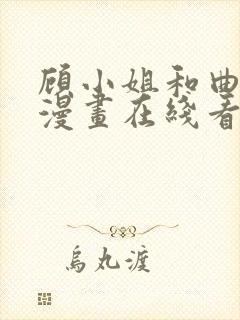 顾小姐和曲
漫畫在綫看
烏丸渡